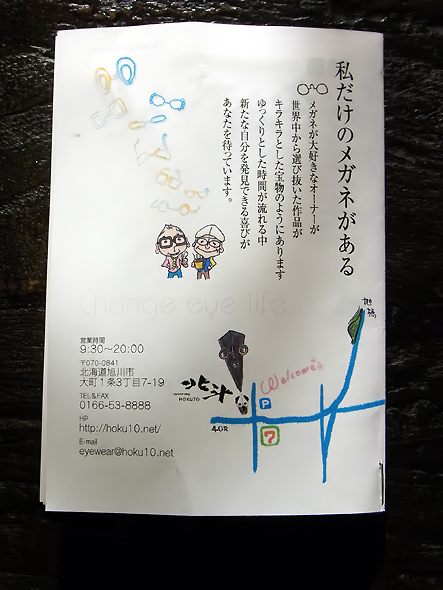 私だけのメガネがある
メガネが大好きなオーナーが
世界中から選び抜いた作品が
キラキラとした宝物のようにあります
ゆっくりとした時間が流れる中
新たな自分を発見できる喜びが
あなたを待っています。
Change eye life.
営業時間
9:30~20:00
〒070-0841
北海道旭川市
大町1条3丁目7-19
TEL&FAX
0166-53-8888
HP
http://hoku10.net/
E-mail
eyewear@hoku10.net
北斗
HOKUTO
Welcome
P
7
40R